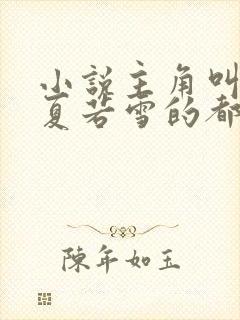 小说主角叫
夏若雪的都
陈年如玉